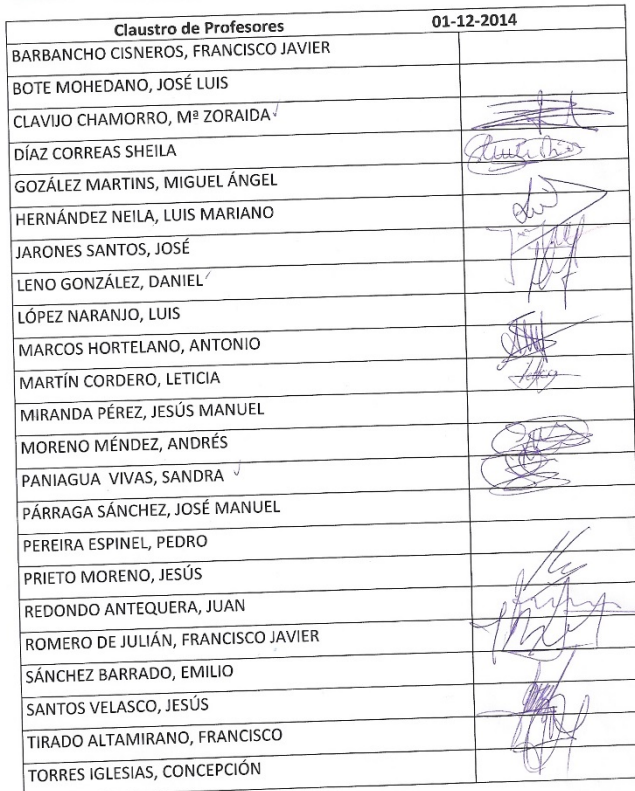 Claustro de Profesores 01-12-2014
BARBANCHO CISNEROS, FRANCISCO JAVIER
BOTE MOHEDANO, JOSÉ LUIS
CLAVIJO CHAMORRO, Mª ZORAIDA
DÍAZ CORREAS SHEILA
GOZÁLEZ MARTINS, MIGUEL ÁNGEL
HERNÁNDEZ NEILA, LUIS MARIANO
JARONES SANTOS, JOSÉ
LENO GONZÁLEZ, DANIEL
LÓPEZ NARANJO, LUIS
MARCOS HORTELANO, ANTONIO
MARTÍN CORDERO, LETICIA
MIRANDA PÉREZ, JESÚS MANUEL
MORENO MÉNDEZ, ANDRÉS
PANIAGUA VIVAS, SANDRA
PÁRRAGA SÁNCHEZ, JOSÉ MANUEL
PEREIRA ESPINEL, PEDRO
PRIETO MORENO, JESÚS
REDONDO ANTEQUERA, JUAN
ROMERO DE JULIÁN, FRANCISCO JAVIER
SÁNCHEZ BARRADO, EMILIO
SANTOS VELASCO, JESÚS
TIRADO ALTAMIRANO, FRANCISCO
TORRES IGLESIAS, CONCEPCIÓN